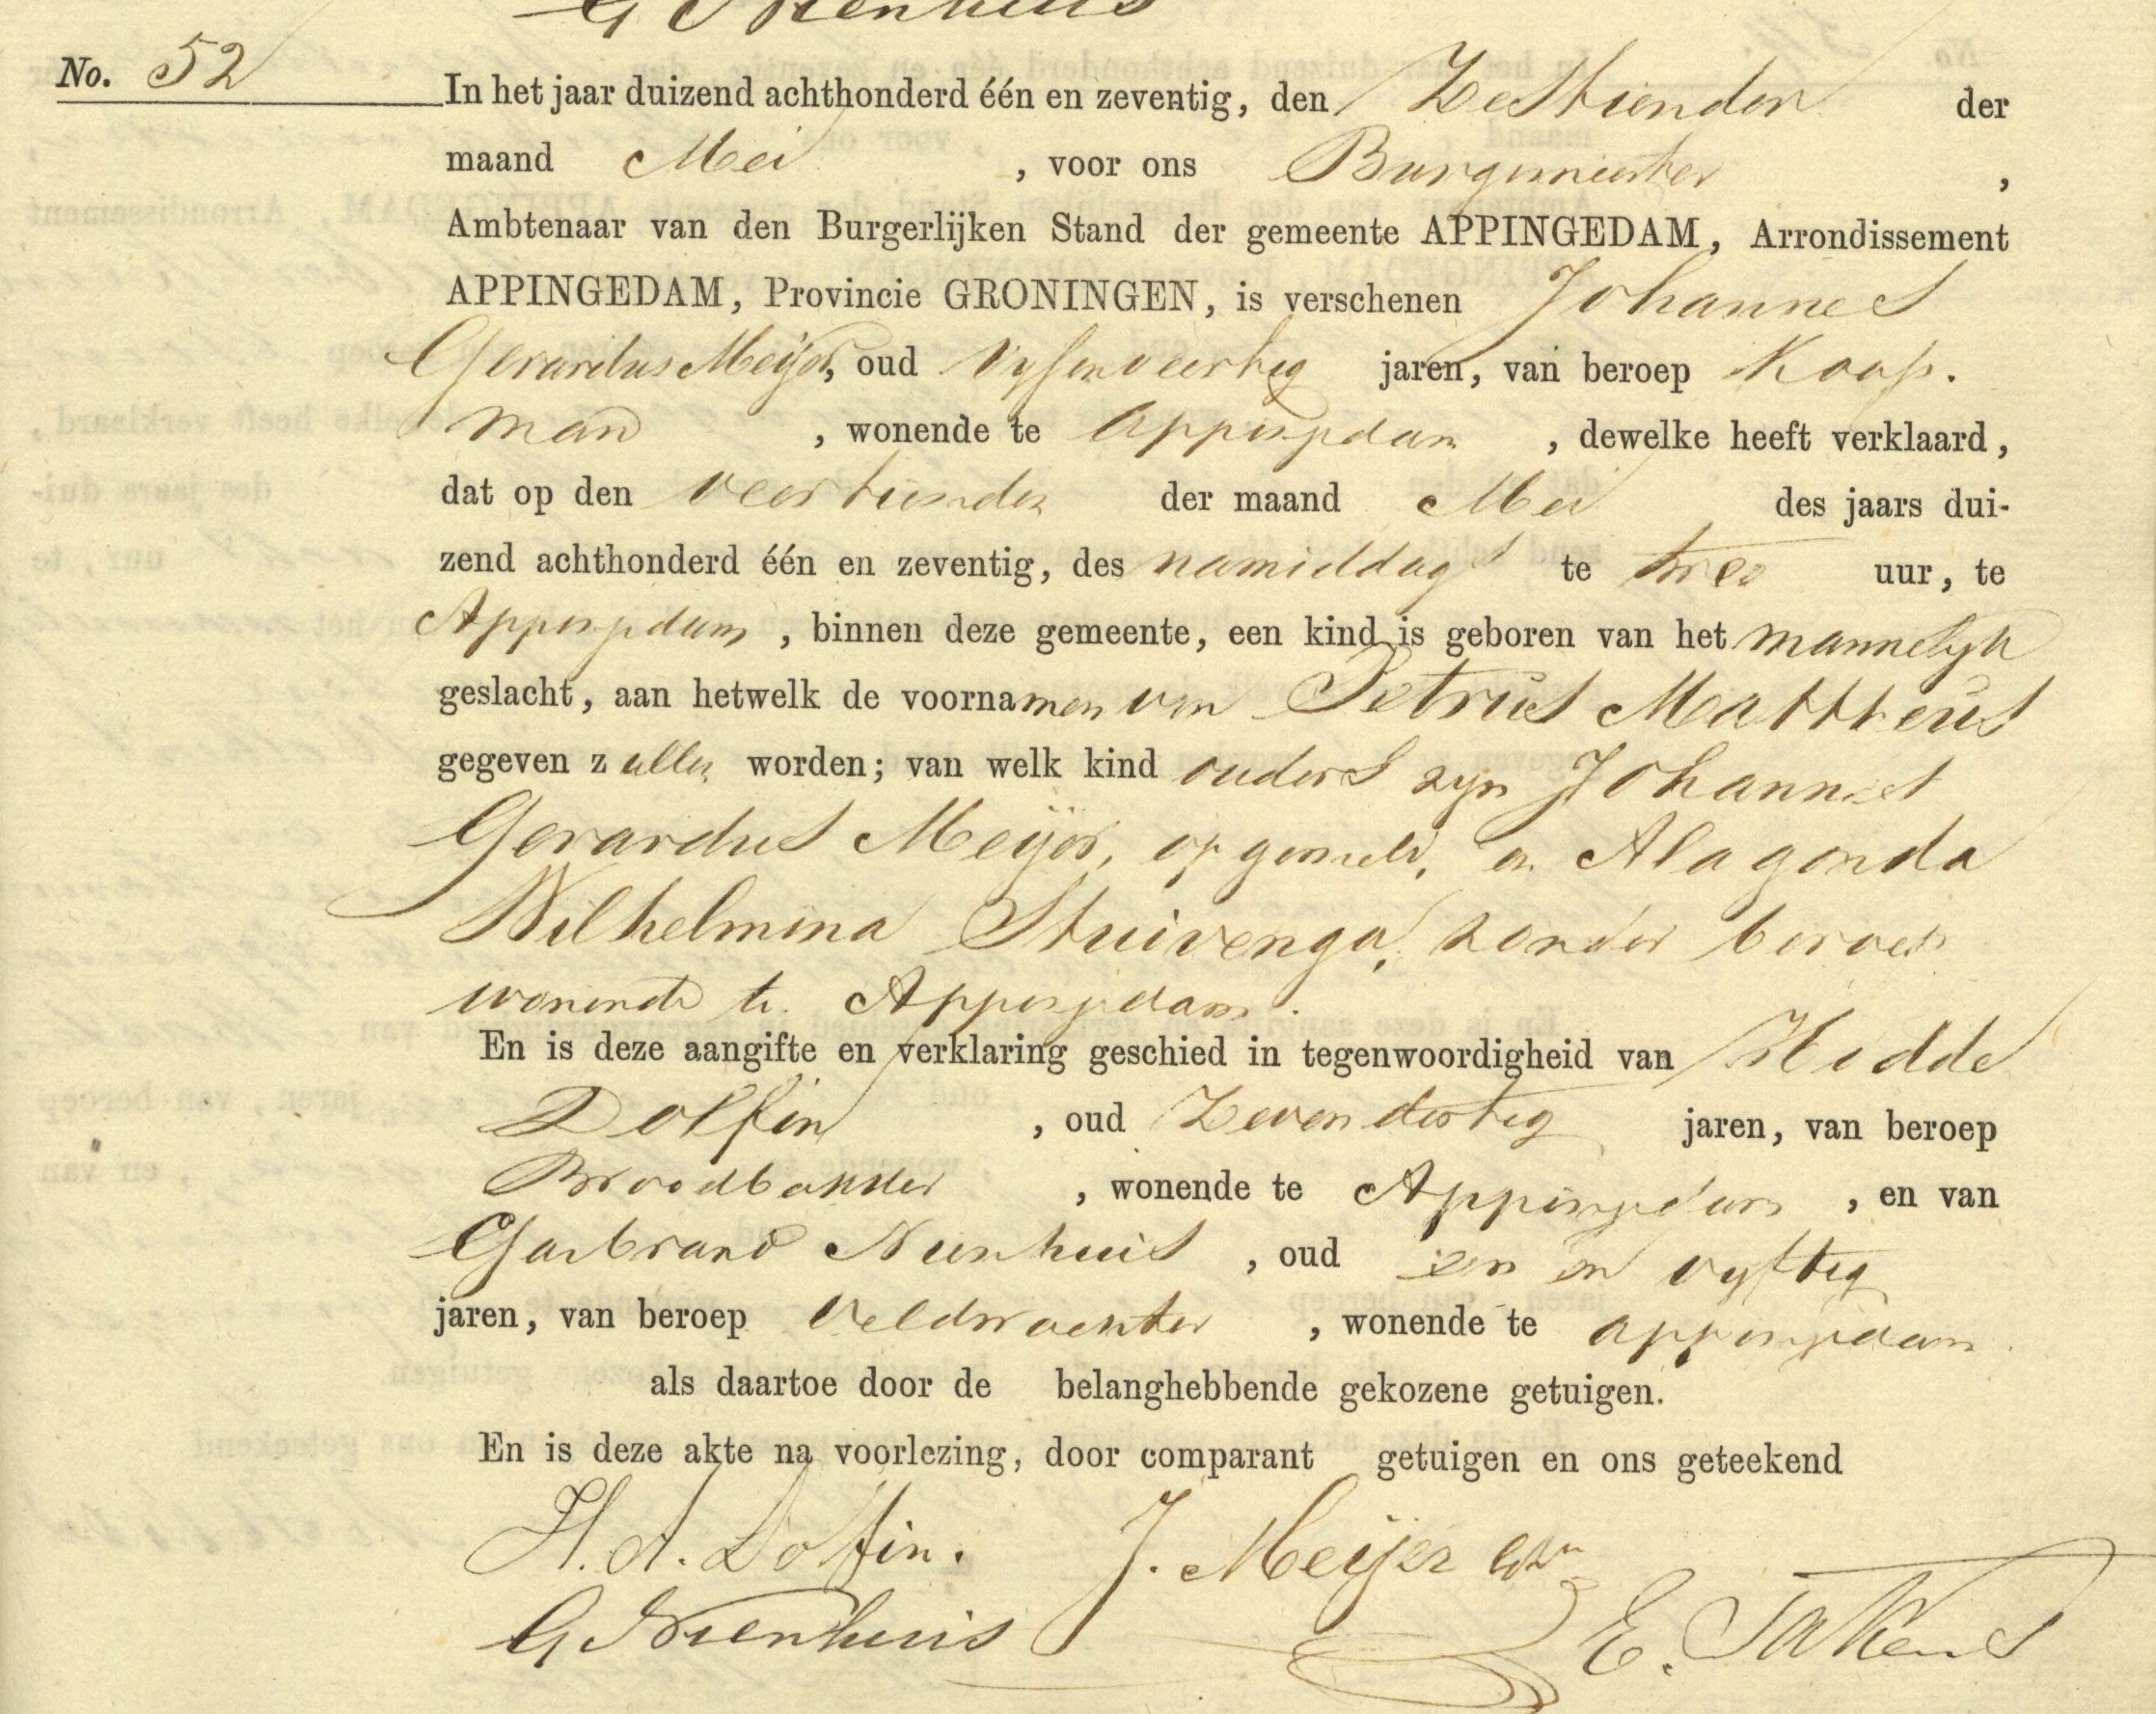 G Nienhuis
No. 52
In het jaar duizend achthonderd één en zeventig, den Zestienden der
maand Mei , voor ons Burgemeester ,
Ambtenaar van den Burgerlijken Stand der gemeente APPINGEDAM, Arrondissement
APPINGEDAM, Provincie GRONINGEN, is verschenen Johannes
Gerardus Meijer, oud vyfenveertig jaren, van beroep Koop-
man , wonende te Appingedam , dewelke heeft verklaard,
dat op den veertienden der maand Mei des jaars dui-
zend achthonderd één en zeventig, des namiddags te twee uur, te
Appingedam , binnen deze gemeente, een kind is geboren van het mannelyk
geslacht, aan hetwelk de voornamen van Petrus Mattheus
gegeven zullen worden; van welk kind ouders zyn Johannes
Gerardus Meijer, opgemeld, en Alagonda
Wilhelmina Stuivenga, zonder beroep
wonende te Appingedam.
En is deze aangifte en verklaring geschied in tegenwoordigheid van Hidde
Dolfin , oud Zevendertig jaren, van beroep
Broodbakker , wonende te Appingedam , en van
Garbrand Nienhuis , oud een en vyftig
jaren, van beroep Veldwachter , wonende te Appingedam
als daartoe door de belanghebbende gekozene getuigen.
En is deze akte na voorlezing, door comparant getuigen en ons geteekend
H. A. Dolfin. J. Meijer
G Nienhuis E. Takens